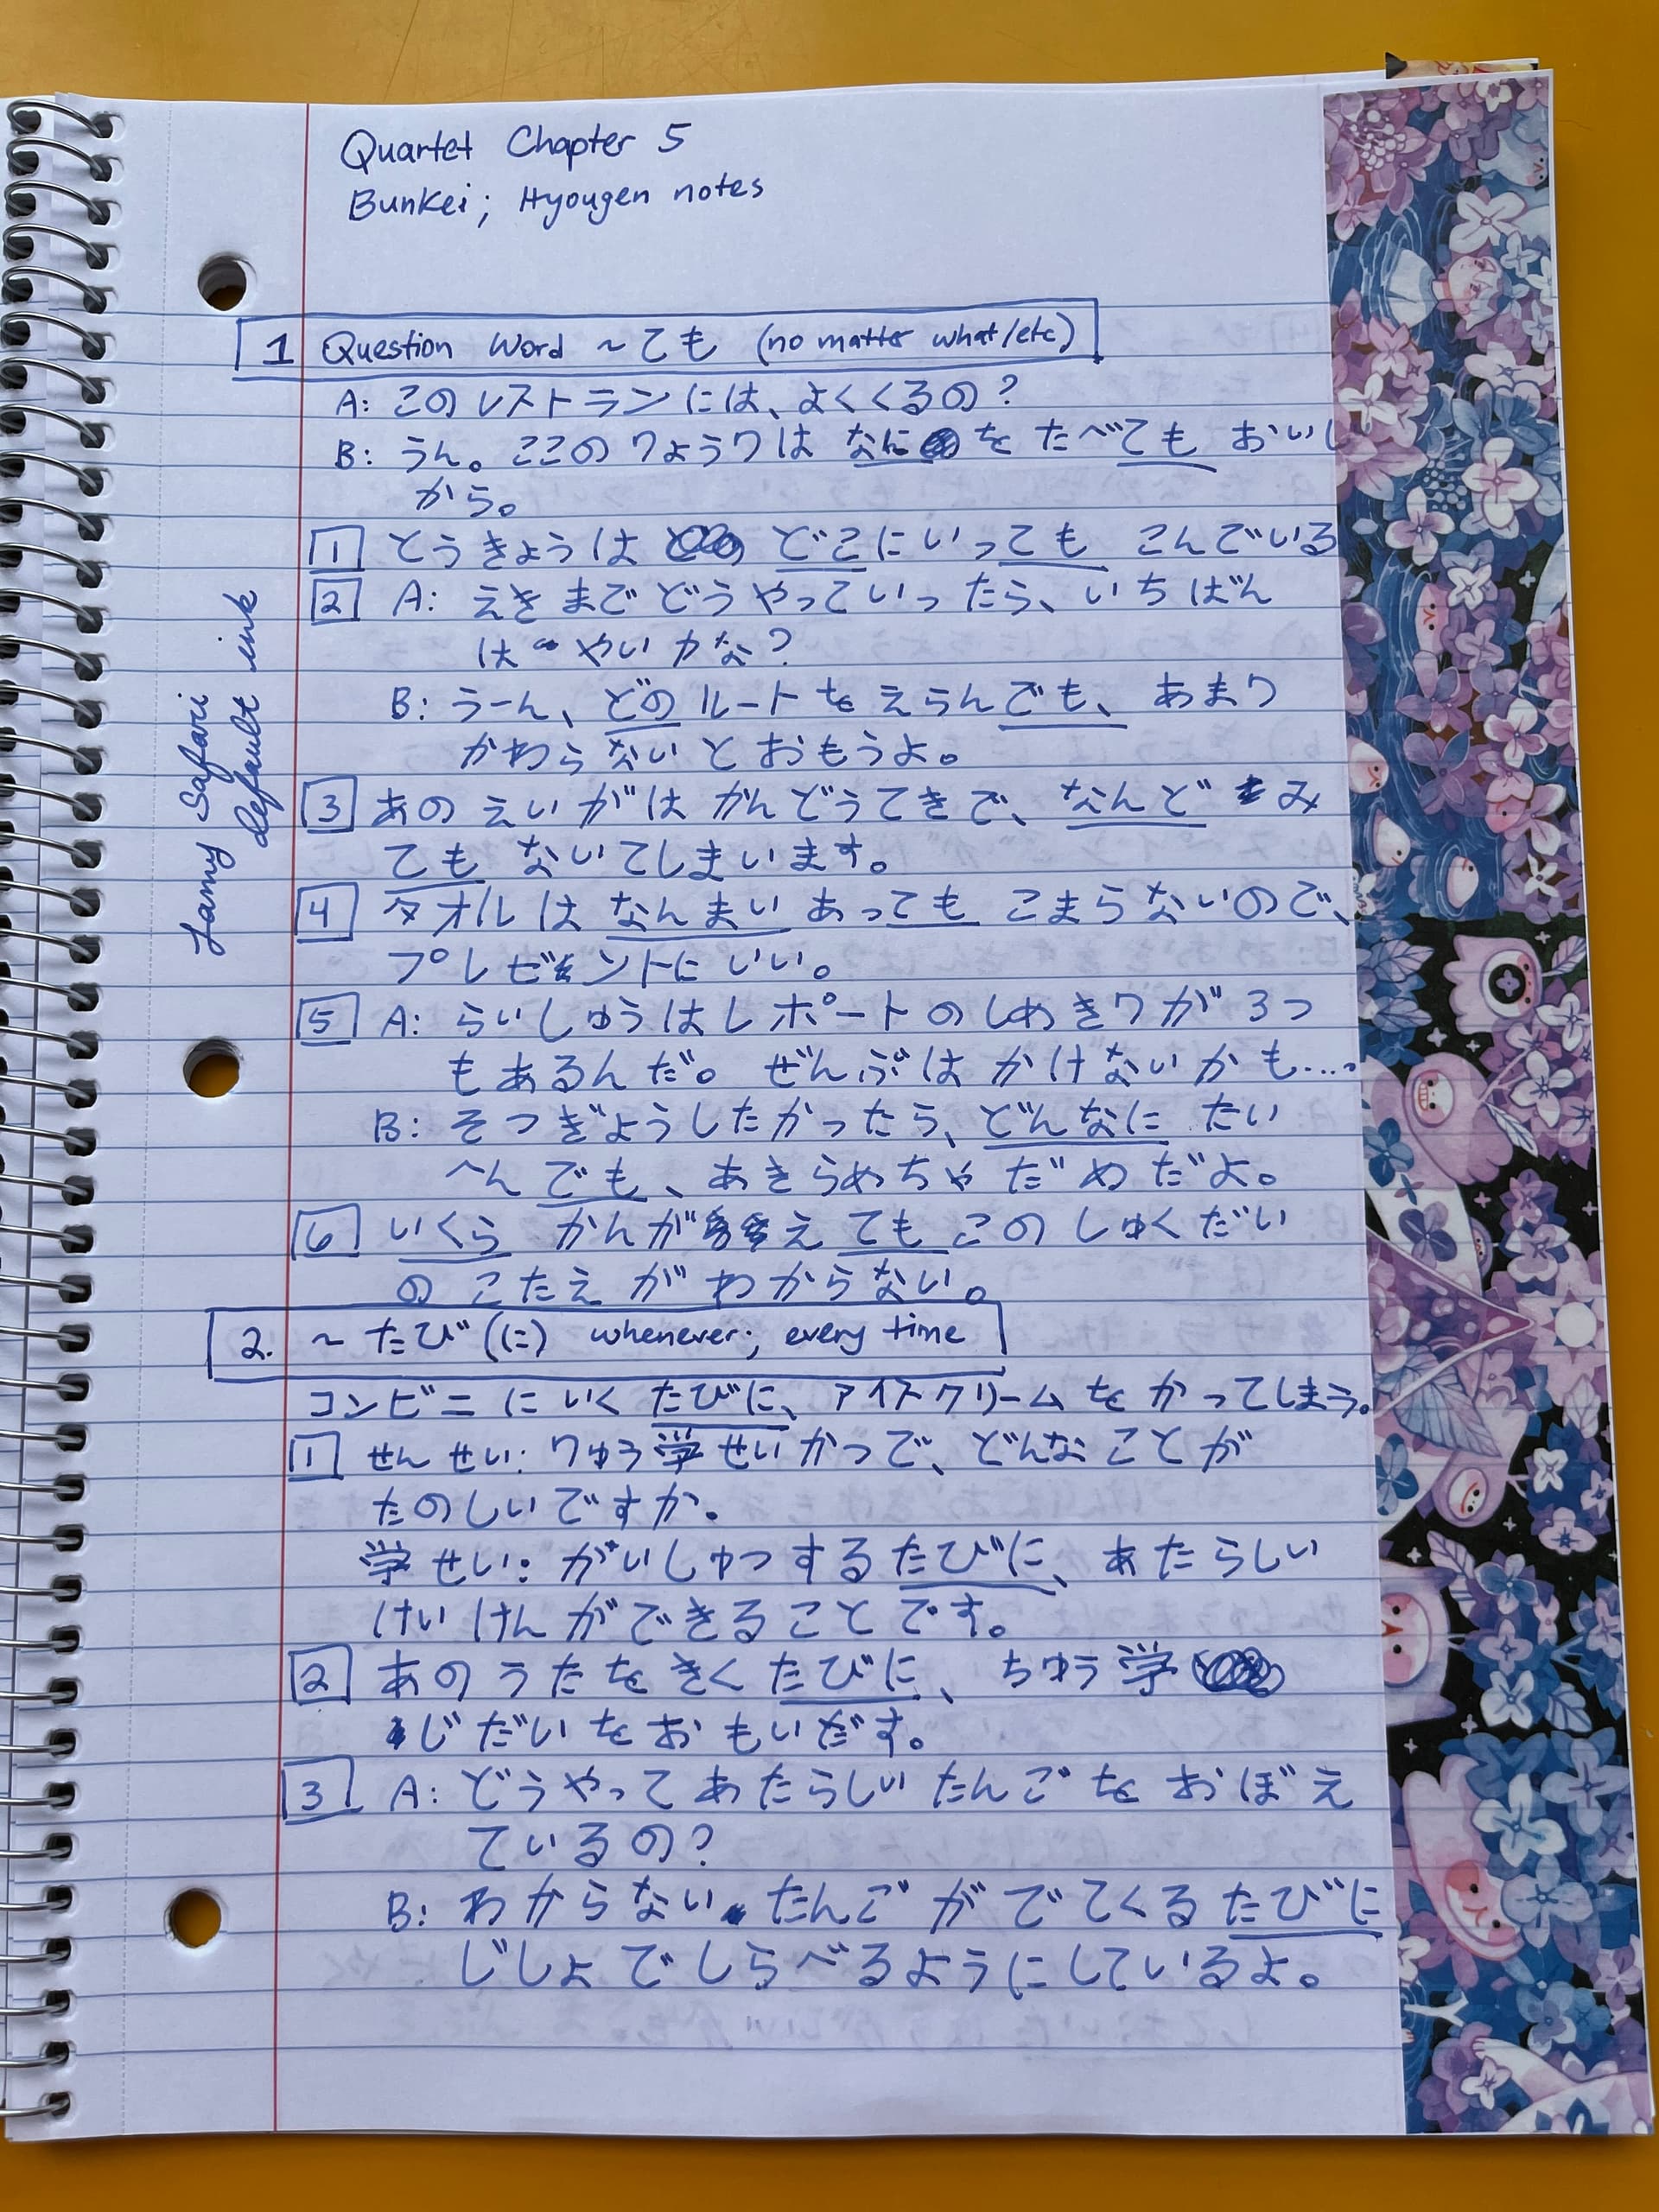 Quartet Chapter 5
Bunkei; Hyougen notes
1 Question Word ~ても (no matter what/etc)
A: このレストランには、よくくるの?
B: うん。ここのりょうりは なに を たべても おいし
から。
1 とうきょうは どこにいっても こんでいる
2 A: えきまでどうやっていったら、いちばん
はやいかな?
B: うーん、どのルートをえらんでも、あまり
かわらないとおもうよ。
3 あのえいがはかんどうてきで、なんど み
ても ないてしまいます。
4 タオルは なんまい あっても こまらないので、
プレゼントにいい。
5 A: らいしゅうはレポートのしめきりが3つ
もあるんだ。ぜんぶはかけないかも....
B: そつぎょうしたかったら、どんなに たい
へんでも、あきらめちゃだめだよ。
6 いくら かんがえても このしゅくだい
のこたえがわからない。
2. ~たび(に) whenever; every time
コンビニにいくたびに、アイスクリームをかってしまう。
1 せんせい: りゅう学せいかつで、どんなことが
たのしいですか。
学せい: がいしゅつするたびに、あたらしい
けいけんができることです。
2 あのうたをきくたびに、ちゅう学
じだいをおもいだす。
3 A: どうやってあたらしいたんごをおぼえ
ているの?
B: わからないたんごがでてくるたびに
じしょでしらべるようにしているよ。
Lamy Safari
default ink